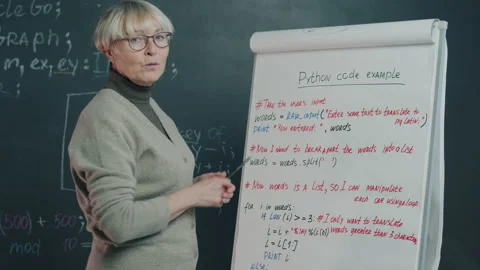 Go;
GRAPH;
m, ex, ey:
(500) + 500;
mod 10 =
Python code example
# Take the users input
words = RAW_input("Enter some text to translate to
pig latin:")
PRINT "You entered: ", words
# Now I want to break apart the words into a list
words = words.split(' ')
# Now words is a list, so I can manipulate
each one using a loop
for i in words:
if LEN(i) >= 3: # I only want to translate
words greater than 3 characters
PRINT i
ELSE: